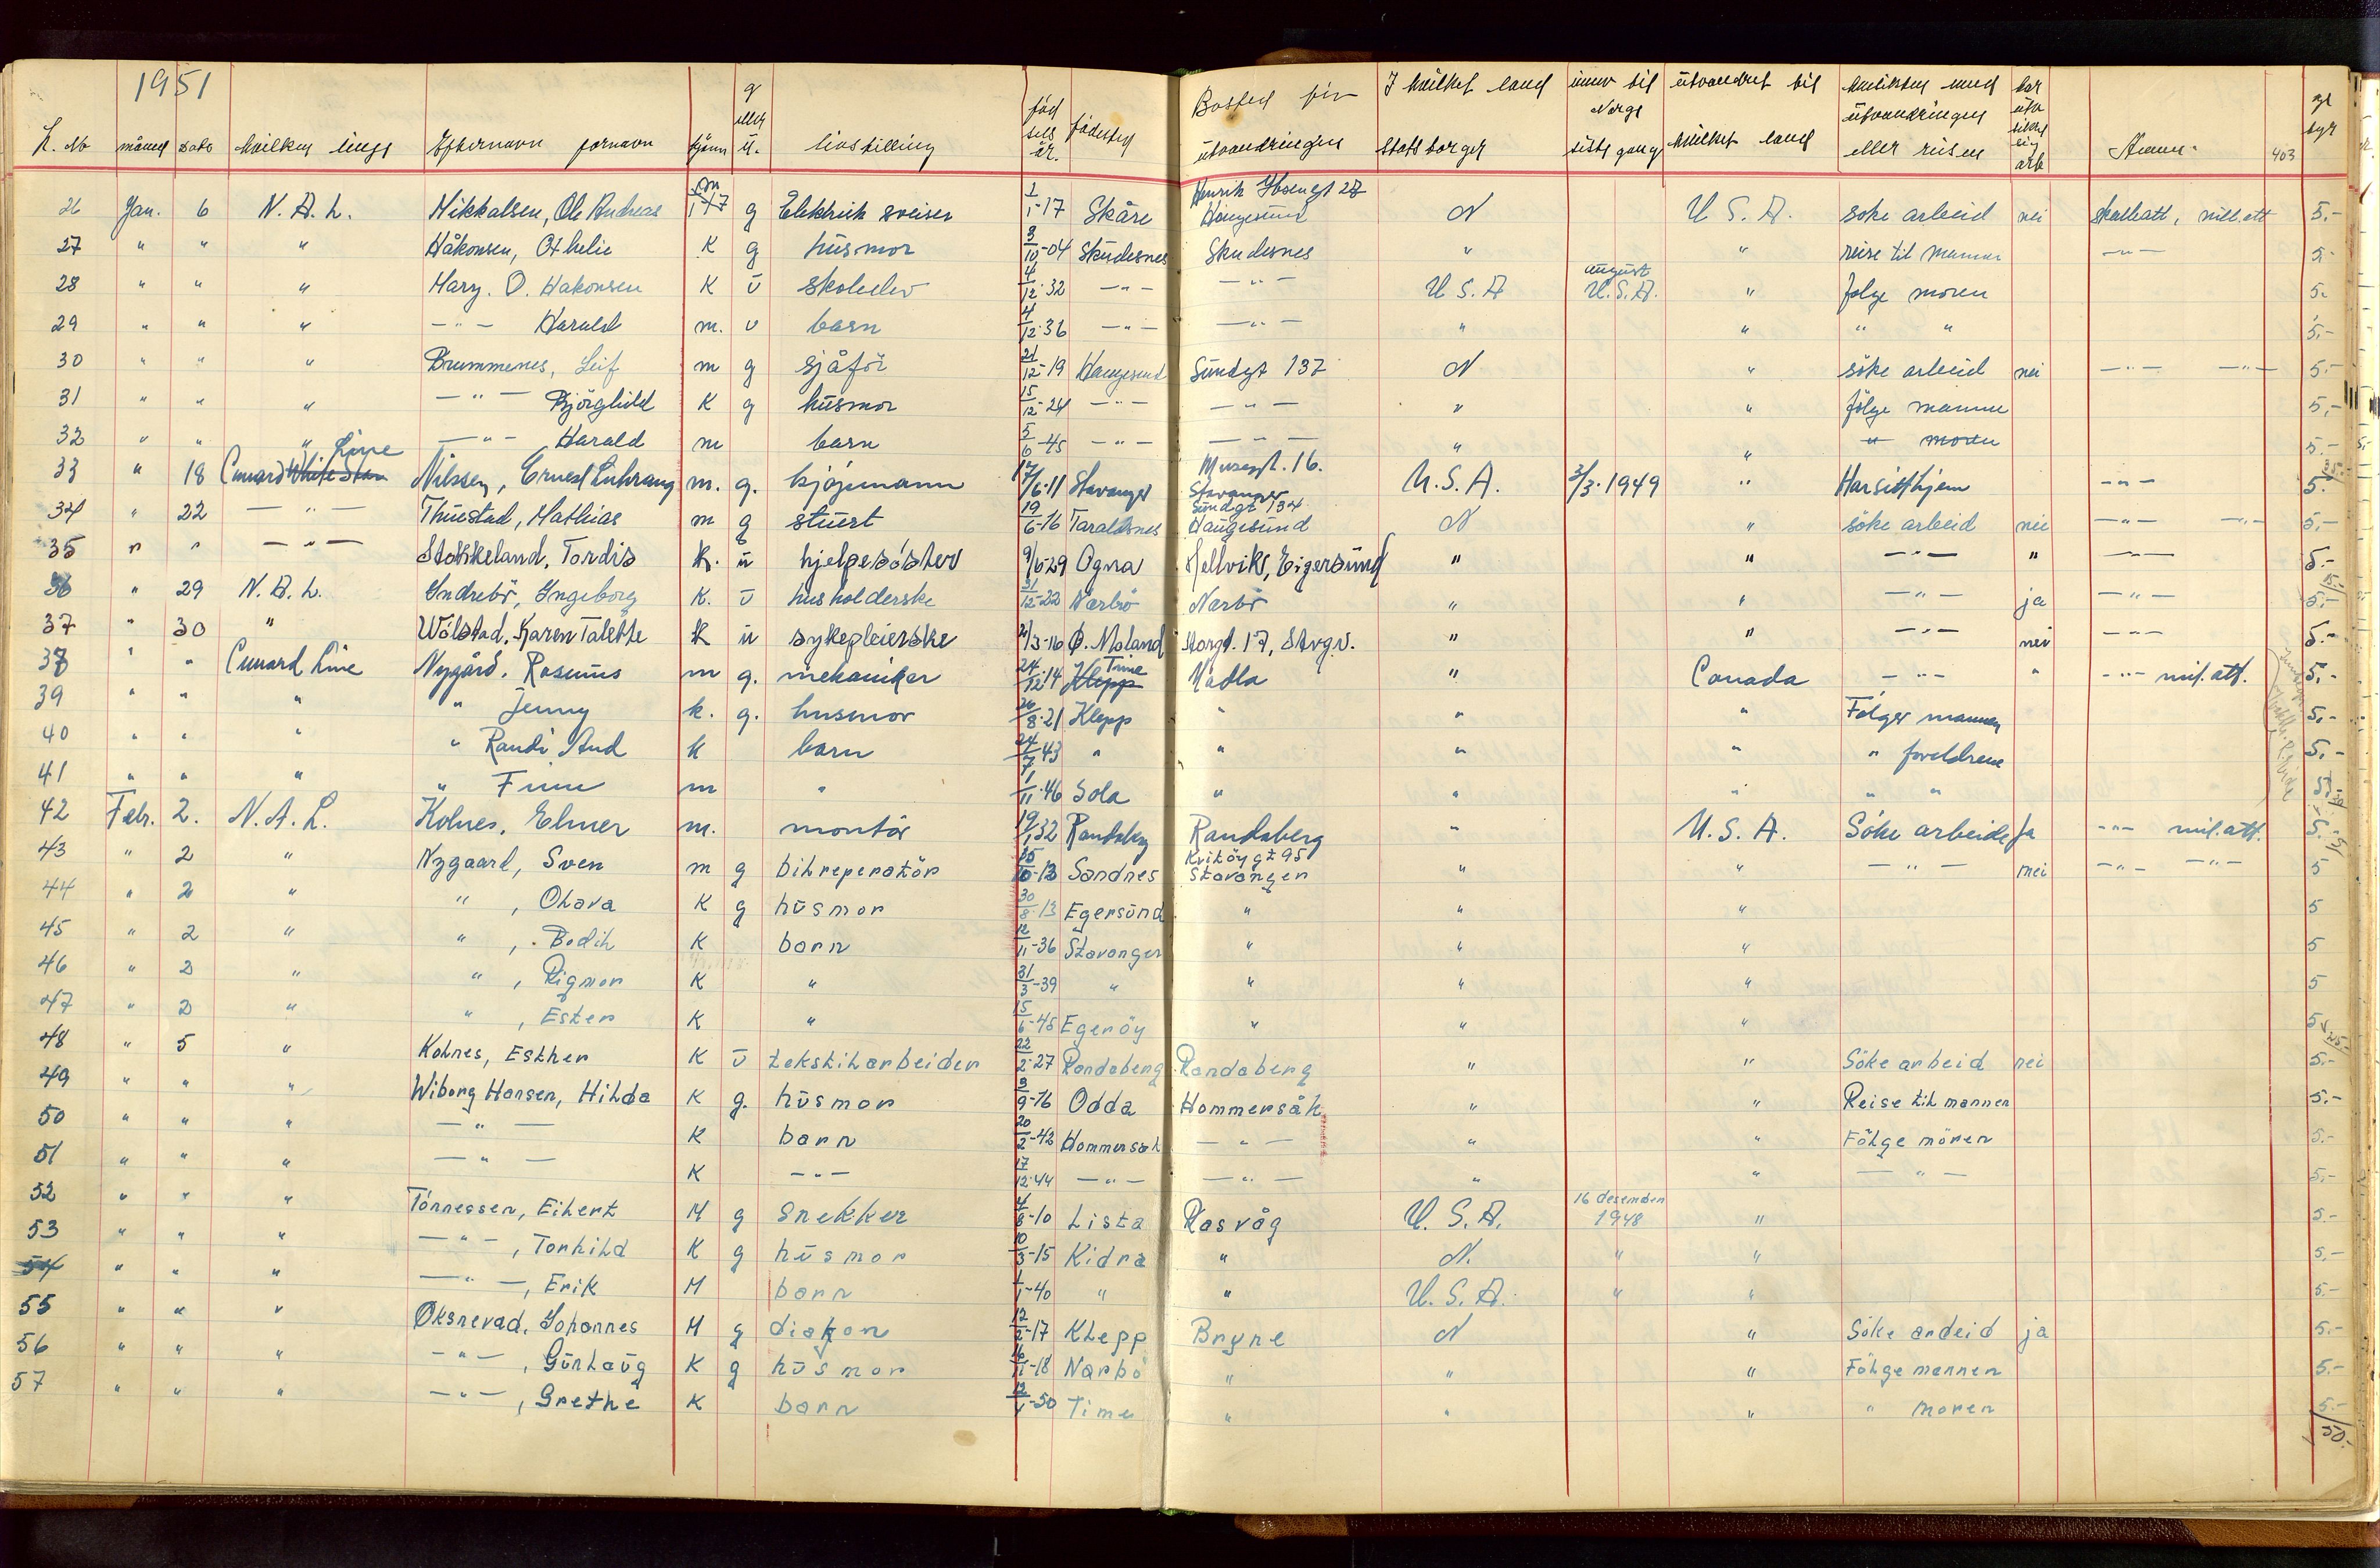 1951
403
L. No måned Dato hvilken linje Efternavn fornavn kjønn g eller u. livstilling fødselsår. fødested Bosted før utvandringen I hvilket land statsborger innv til Norge siste gang utvandret til hvilket land hensikten med utvandringen eller reisen har utv sikkert arb Anm. gebyr
26 Jan. 6 N.A.L. Mikkalsen, Ole Andreas m g Elektrisk sveiser 1/1-17 Skåre Henrik Ibsengt 27 Haugesund N U.S.A. söke arbeid nei skatteatt, mil.att 5.-
27 " " " Håkonsen, Othelie K g husmor 3/10-04 Skudesnes Skudesnes " " reise til mannen -"- 5.-
28 " " " Mary. O. Hakonsen K u skoleelev 4/12-32 -"- -"- U.S.A august U.S.A. " følge moren 5.-
29 " " " -"- Harald m. u barn 4/12-36 -"- -"- " " " " 5.-
30 " " " Brummenes, Leif m g sjåför 21/12-19 Haugesund Sundgt 137 N " söke arbeid nei -"- -"- 5.-
31 " " " -"- Bjørghild K g husmor 15/12-24 -"- -"- " " fölge mannen 5,-
32 " " " -"- Harald m barn 5/6-45 -"- -"- " " " moren 5.-
33 " 18 Cunard White Star Linje Nilssen, Ernest Luhrang m. g. kjøpmann 17/6-11 Stavanger Museegt. 16. Stavanger U.S.A. 3/3-1949 " Har sitt hjem -"- 5.-
34 " 22 -"- Thuestad, Mathias m g stuert 19/6-16 Taraldsnes Sundgt 134 Haugesund N " söke arbeid nei -"- -"- 5,-
35 " " -"- Stokkeland, Tordis K. u hjelpesöster 9/6-29 Ogna Hellvik, Eigersund " " -"- " -"- 5.-
36 " 29 N.A.L. Indrebö, Ingeborg K. u husholderske 31/12-22 Nærbö Nærbö " " -"- ja -"- 5.-
37 " 30 " Wölstad, Karen Talette K u sykepleierske 2/3-16 Ö. Moland Storgt. 17, Stvgr. " " -"- nei -"- 5.-
38 " " Cunard Line Nygård, Rasmus m g. mekaniker 24/12-14 Klepp Time Madla " Canada -"- " -"- mil.att. 5,-
39 " " " " Jenny k. g. husmor 26/8-21 Klepp " " " Følger mannen 5.-
40 " " " " Randi Aud k barn 24/7-43 " " " " " foreldrene 5.-
41 " " " " Finn m " 1/11-46 Sola " " " " " 5.-
42 Febr. 2. N.A.L. Kolnes, Elmer m. montör 19/1-32 Randaberg Randaberg " U.S.A. Söke arbeide Ja -"- mil.att. 5.-
43 " 2 " Nygaard, Sven m g bilreperatör 15/10-13 Sandnes Kvitöy gt 95 Stavanger " " -"- nei -"- -"- 5
44 " 2 " " , Olava K g husmor 30/8-13 Egersund " " " 5
45 " 2 " " , Bodil K barn 12/11-36 Stavanger " " " 5
46 " 2 " " , Rigmor K " 31/3-39 " " " " 5
47 " 2 " " , Ester K " 15/6-45 Egeröy " " " 5
48 " 5 " Kolnes, Esther K u tekstilarbeider 22/2-27 Randaberg Randaberg " " Söke arbeid nei 5.-
49 " " " Wiborg Hansen, Hilda K g. husmor 3/9-16 Odda Hommersåk " " Reise til mannen 5.-
50 " " " -"- K barn 20/2-42 Hommersåk -"- " " Fölge moren 5.-
51 " " " -"- K -"- 17/12-44 -"- -"- " " -"- 5.-
52 " " " Tönnessen, Eilert M g snekker 4/8-10 Lista Rasvåg U.S.A. 16 desember 1948 " 5.-
53 " " " -"-, Torhild K g husmor 10/3-15 Kidra " N. " " 5.-
54 " " " -"-, Erik M barn 1/1-40 " " U.S.A. " " 5.-
55 " " " Oksnevad, Johannes M g diakon 12/2-17 Klepp Bryne N " Söke arbeid ja 5.-
56 " " " -"-, Gunlaug K g husmor 16/1-18 Narbö " " " Fölge mannen 5.-
57 " " " -"-, Grethe K barn 12/1-50 Time " " " " moren 5.-
50.-